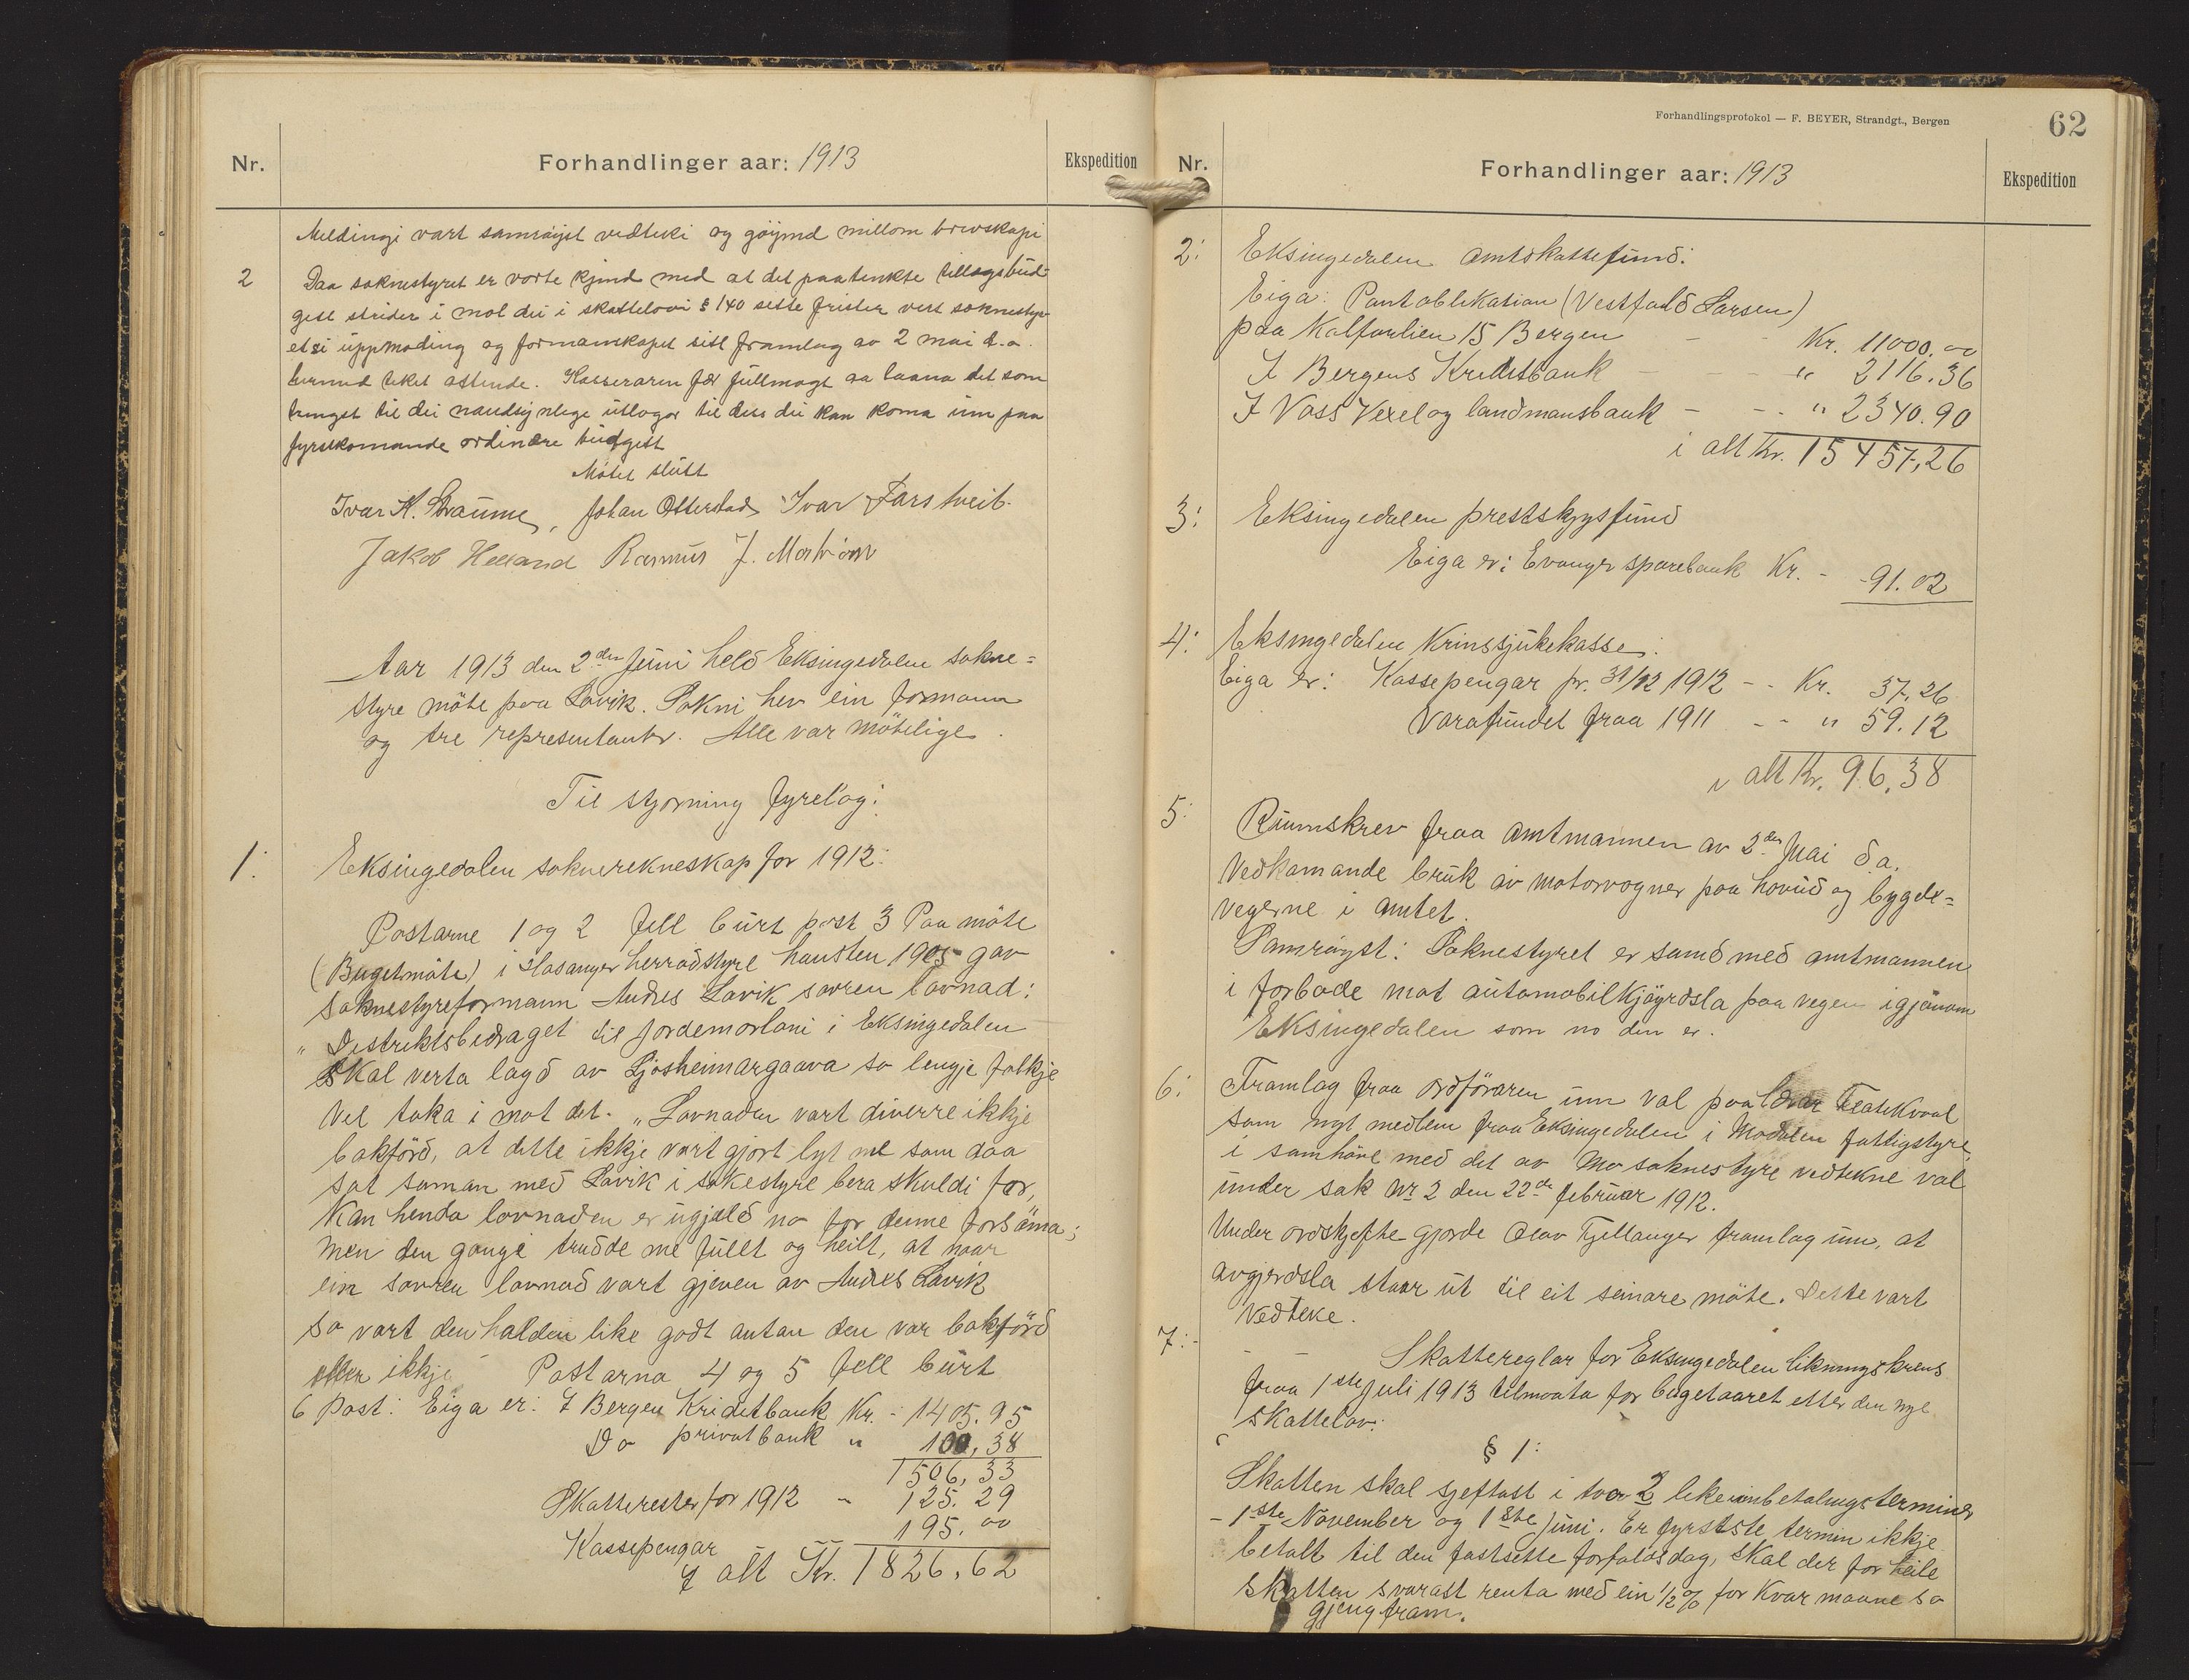 Nr.
Forhandlinger aar: 1913
Ekspedition
Meldingi vart samrøyst vedteki og gøymd millom brevskapi
2 Daa soknestyret er vorte kjend med at det paatenkte tillægsbud-
gett strider i mot dei i skattelovi § 140 sette frister vert soknesty-
etsi uppmoding og formannskapet sitt framlag av 2 mai d. a.
hermed teket attende. Kasseraren fær fullmagt aa laana det som
tungst til dei naudsynlege utlogor til dess dei kan koma inn paa
fyrstkomande ordinære budgett
Møtet slutt
Ivar K. Straume, Johan Otterstad Ivar Farstveit.
Jakob Helland Rasmus J.
Aar 1913 den 2den Juni held Eksingedalen sokne=
styre möte paa Lavik. Sokni hev ein formann
og tre representantar. Alle var mötelige.
Til styrning fyrelog:
1: Eksingedalen soknerekneskap for 1912:
Postarne 1 og 2 fell burt post 3 Paa möte
(Bugetmöte) i Hosanger herradstyre hausten 1905 gav
soknestyreformann Andres Lavik sovren lovnad:
„Distriktsbidraget til jordemorlöni i Eksingedalen
skal verta lagd av Ljosheimargaava so lengje folkje
vil taka i mot det. „Lovnaden vart diverre ikkje
bokförd, at dette ikkje vart gjort lyt me som daa
sat saman med Lavik i sokestyre bera skuldi for,
Kan henda lovnaden er ugjeld no for denne forsöma;
men den gongi trudde me fullt og heilt, at naar
ein sovren lovnad vart gjeven av Andres Lavik
so vart den halden like godt antan den var bokförd
eller ikkje Postarna 4 og 5 fell burt
6 Post: Eiga er: I Bergen Kriditbank Kr. - 1405.95
Do privatbank " 100,38
1506,33
Skatterester for 1912 - 125.29
Kassepengar 195.00
I alt Kr. 1826.62
Forhandlingsprotokol — F. BEYER, Strandgt., Bergen
62
Nr.
Forhandlinger aar: 1913
Ekspedition
2: Eksingedalen amtskattefund:
Eiga: Pantoblikasian (Vestfald Larsen)
paa Kalfarlien 15 Bergen - - Kr. 11000.00
I Bergens Kreditbank - - - " 2116.36
I Voss Vexel og landmansbank - - - " 2340.90
i alt Kr. 15457,26
3: Eksingedalen prestskyssfund
Eiga er: Evanger sparebank Kr. - 91.02
4: Eksingedalen Krinssjukekasse:
Eiga er: Kassepengar pr. 31/12 1912 - - Kr. 37,26
Varafundet fraa 1911 - - " 59.12
i alt Kr. 96,38
5: Rundskrev fraa amtmannen av 2den Mai d a.
Vedkamande bruk av motorvogner paa hovud og bygde=
vegerne i amtet.
Samröyst: Soknestyret er samd med amtmannen
i forbode mot automobilkjöyrdsla paa vegen igjönom
Eksingedalen som no den er.
6: Framlag fraa ordföraren um val paa Ivar Flatekvaal
som nyt medlem fraa Eksingedalen i Modalen fattigstyre,
i samhöve med det av Mo soknestyre vedtekne val
under sak nr 2 den 22de februar 1912.
Under ordskjefte gjorde Olav Fjellanger framlag um, at
avgjerdsla staar ut til eit seinare möte. Dette vart
vedteke.
7:- Skattereglar for Eksingedalen likningskrins
fraa 1ste juli 1913 tilmaata for bugetaaret etter den nye
skattelov:
§ 1:
Skatten skal sjeftast i tvo 2 like innbetalingsterminer
- 1ste November og 1ste Juni. Er fyrstste termin ikkje
betalt til den fastsette forfaldsdag, skal der for heile
skatten svarast renta med ein 1/2 % for kvar maane so
gjeng fram.